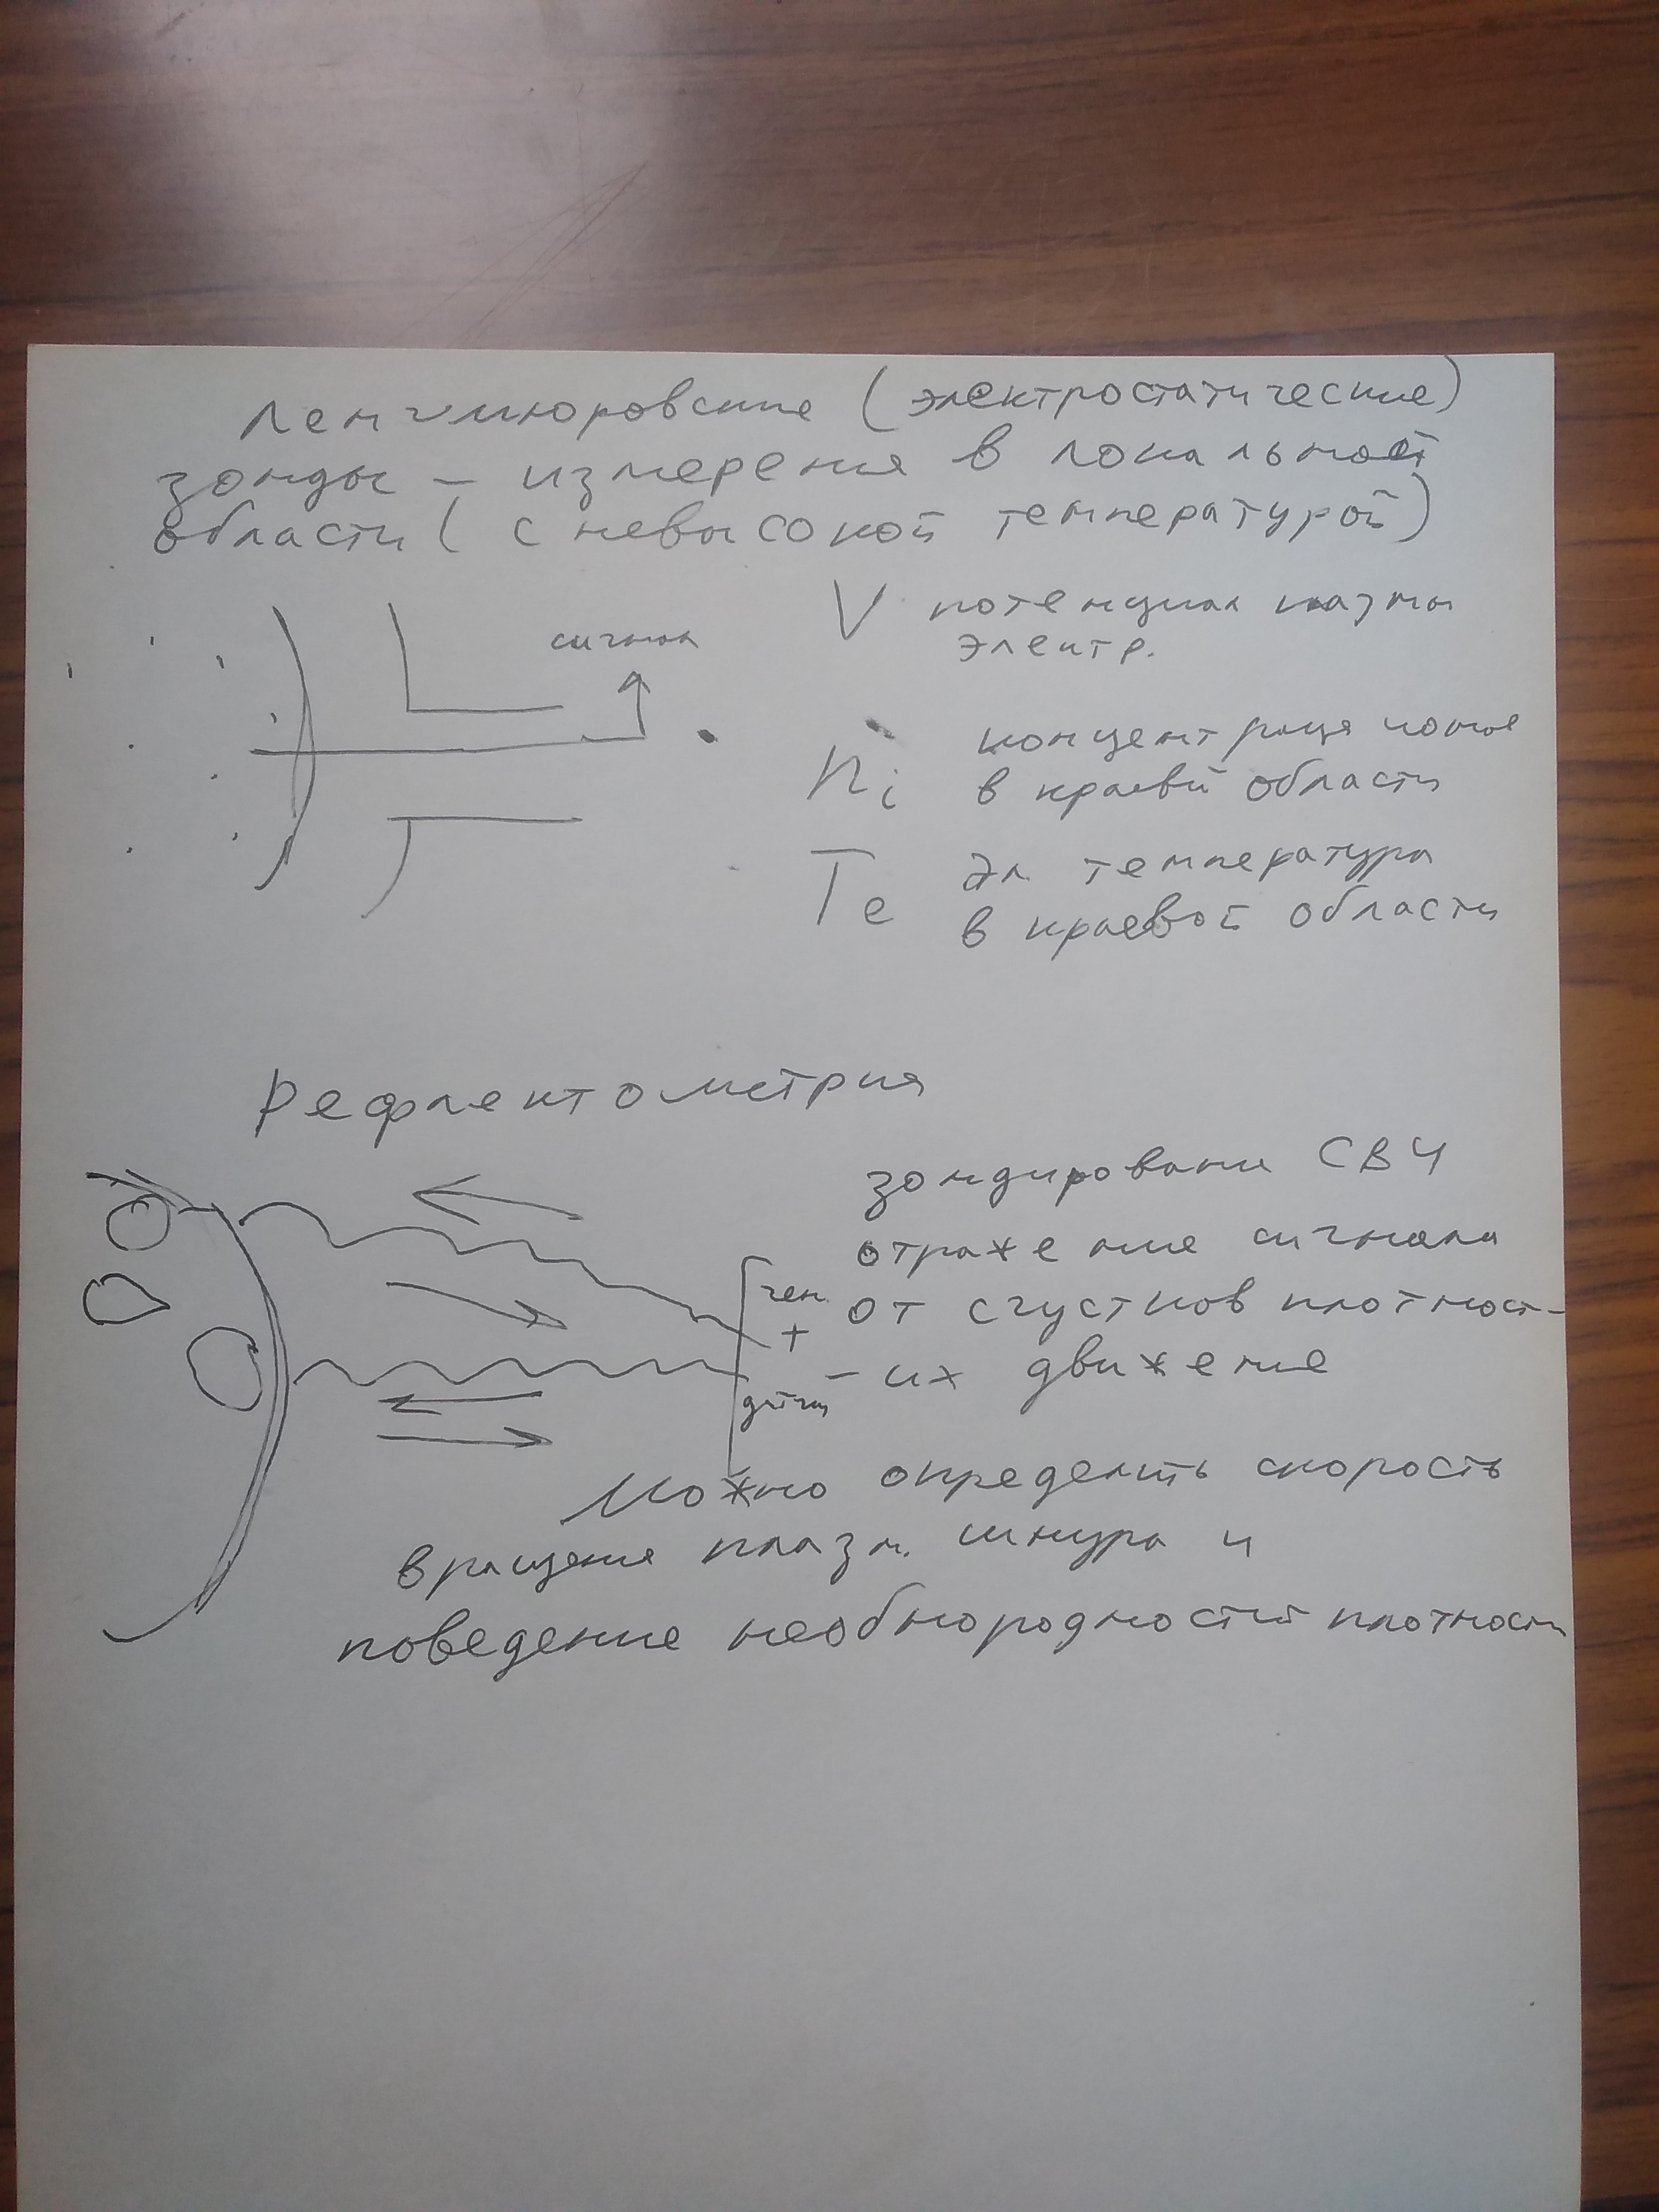 Ленгмюровские (электростатические)
зонды - измерения в локальной
области (с невысокой температурой)
сигнал
V потенциал плазмы
электр.
ni концентрация ионов
в краевй области
Te Эл. температура
в краевой области
Рефлектометрия
зондирование СВЧ
отражение сигнала
ген. от сгустков плотност-
+
- их движение
датчик
Можно определить скорость
вращения плазм. шнура и
поведение необнородностей плотности